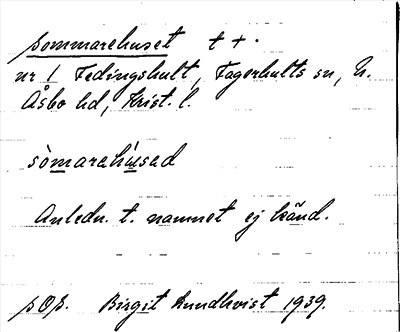 sommarehuset t + .
nr 1 Fedingshult, Fagerhults sn, N.
Åsbo hd, Krist. l.
sòmarahúsad
Anledn. t. namnet ej känd.
pOp. Birgit Lundkvist 1939.